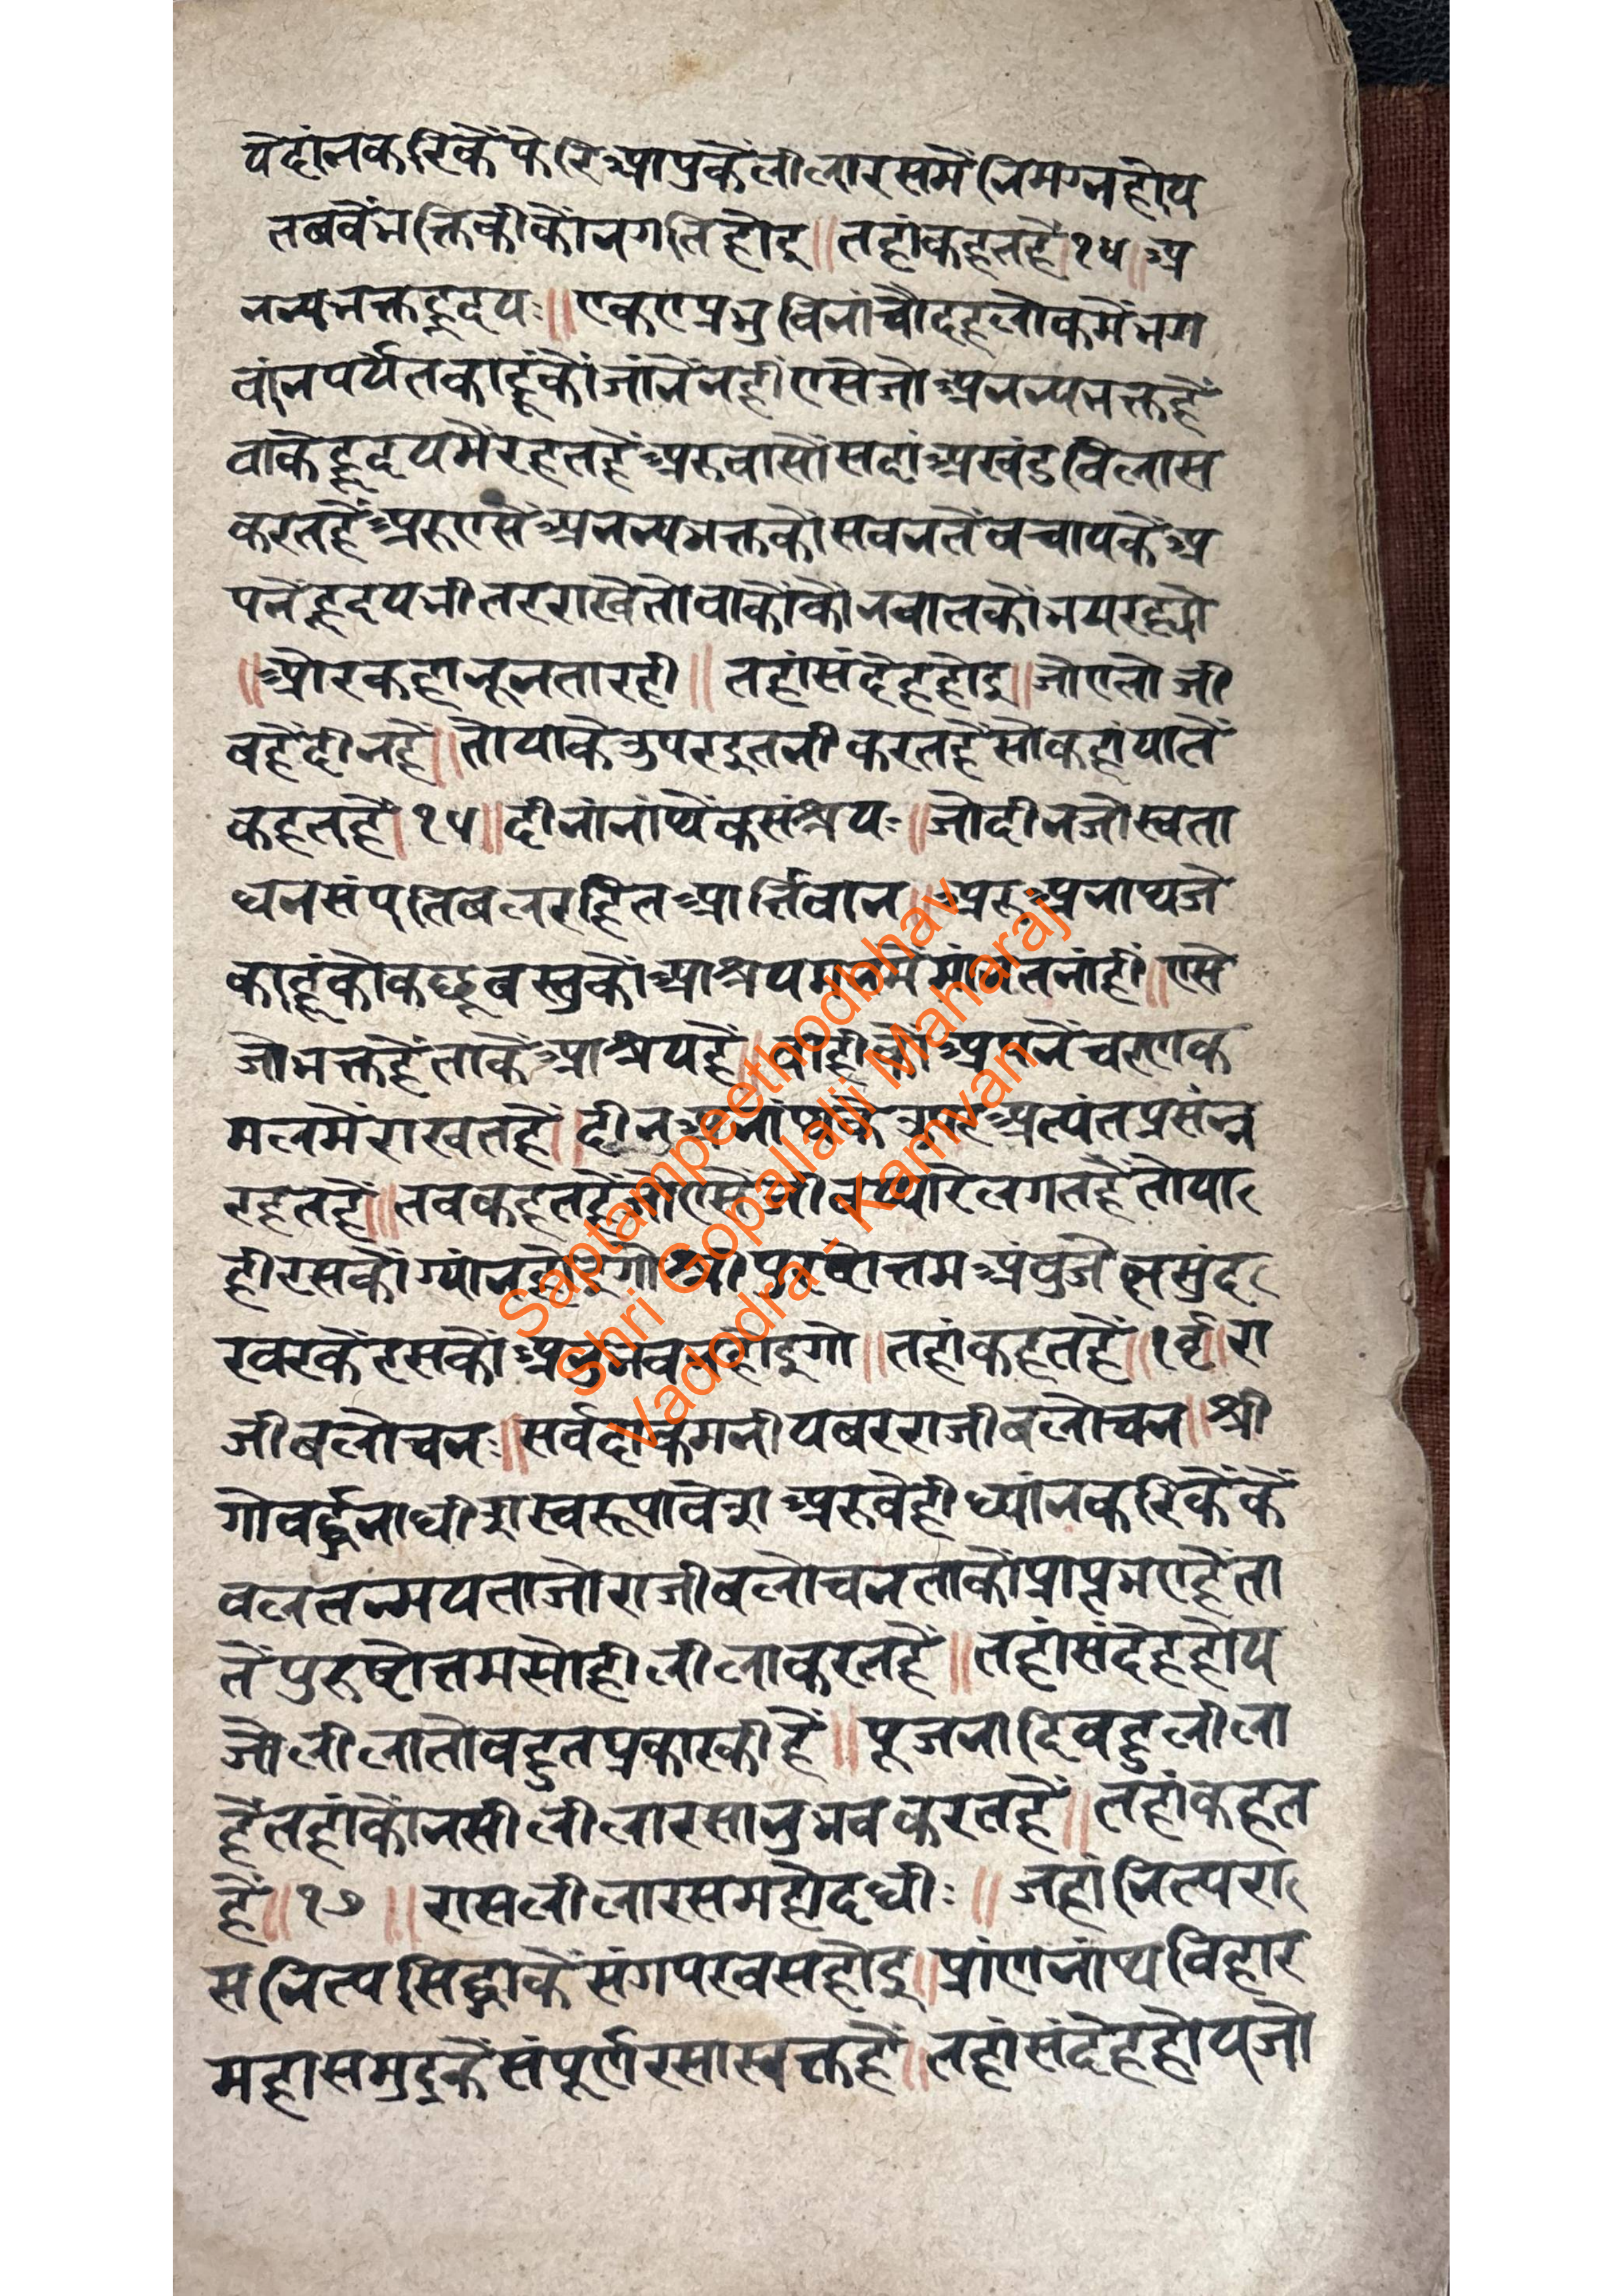 येदांनकरिकैंफेरिआपुकैलीलारसमैंनिमग्नहोय
तबवेंभक्तिकीकोंनगतिहोइ॥तहांकहतहै।१४॥अ
नन्यभक्तहृदयः॥एकएप्रभुविनांचौदहलोकमैंभग
वांनपर्यंतकाहूंकौंजांनैंनहींएसेजोअनन्यभक्तहैं
वाकेहृदयमैंरहतहैंअरुवासौंसदांअखंडविलास
करतहैंअरुएसेंअनन्यभक्तकौंसवनतेंवचायकेंअ
पनेंहृदयभीतरराखैतोवाकौंकोंनवातकौंभयरह्यो
॥औरकहानूनतारही॥तहांसंदेहहोइ॥जोएतोजी
वहैंदीनहै॥तोयाकेउपरइतनीकरतहैंसोकहांयातें
कहतहै।१५॥दीनांनांथ्येंकसंश्रयः॥जोदीनजोस्वता
धनसंपतिबलरहितआर्त्तिवान॥अरुअनाथ्यजे
काहूंकोकछूबस्तुकौंआश्रयमनमैंमांनतनांहीं॥एसे
जोभक्तहैंताकेंआश्रयहैं॥वाहीकौंअपनेंचरणक
मलमैंराखतहैं॥दीनअनांथ्यकेउपरअत्यंतप्रसंन्न
रहतहैं॥तवकहतहैंजोएसेंजीवप्यारेलगतहैंतोया
हीरसकौंग्यांनहोइगोश्रीपुरुषोत्तमअंवुजेत्नसुंद
रवरकेंरसकौंअनुभवनहोइगो॥तहांकहतहैं॥१६॥रा
जीबलोचनः॥सर्वदाकमनीयबरराजीबलोचन॥श्री
गोवर्द्धनाधीशस्वरूपावेशअरुवेहीध्यांनकरिकेंकें
वलतन्मयताजोराजीबलोचनताकौंप्राप्तभएहैंता
तेंपुरुषोत्तमसोहीलीलाकरतहैं॥तहांसंदेहहोय
जोलीलातोवहुतप्रकारकीहैं॥पूजनादिवहुलीला
हैंतहांकौंनसीलीलारसानुभवकरतहैं॥तहांकहत
हैं॥१७॥रासलीलारसमहोदधीः॥जहांनित्यरा
सनित्यसिद्धाकेंसंगपरवसहोइ॥प्रांणनांथ्यविहार
महासमुद्रकेंसंपूर्णरसास्वक्तहैं॥तहांसंदेहहोयजो
Saptampeethodbhav
Shri Gopallalji Maharaj
Vadodra - Kamvan